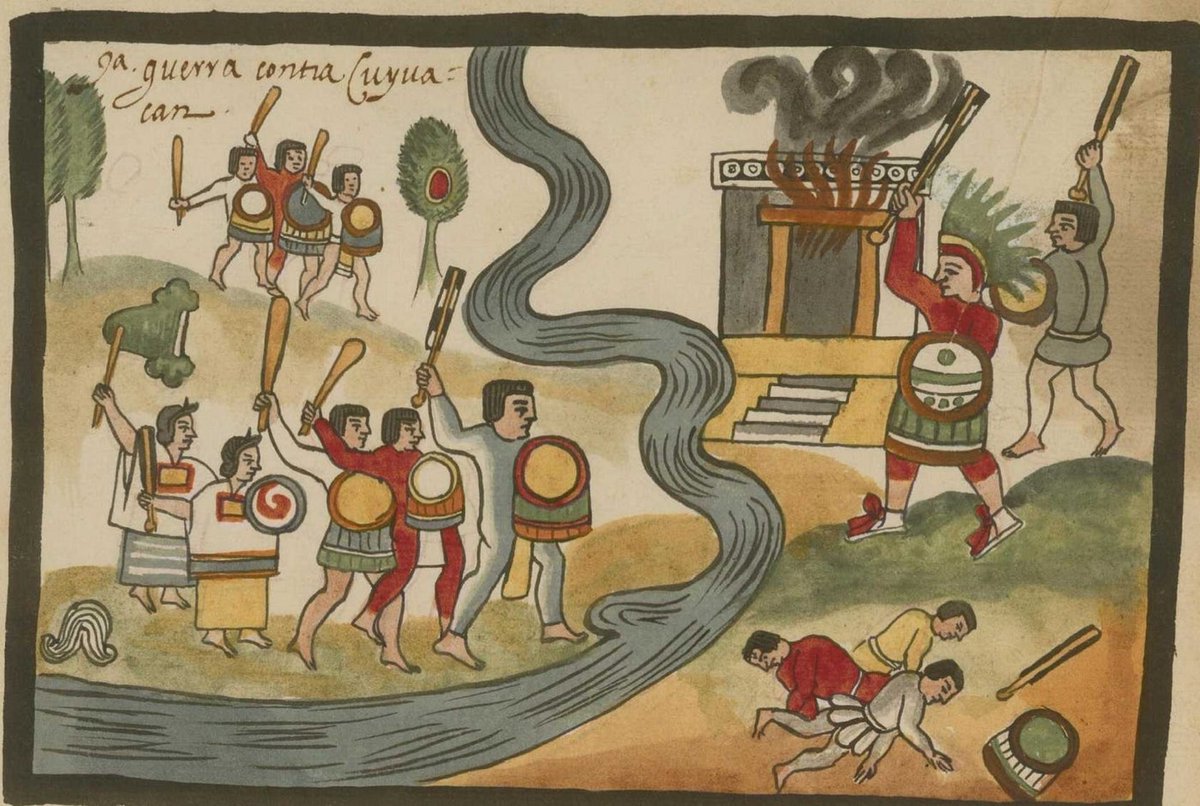 ja. guerra contra Cuyua=
can